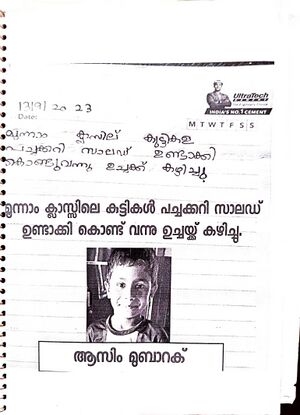 13/9/2023
Date:
UltraTech
CEMENT
INDIA'S NO.1 CEMENT
M T W T F S S
മൂന്നാം ക്ലാസില് കുട്ടികള
പച്ചക്കറി സാലഡ് ഉണ്ടാക്കി
കൊണ്ടുവന്നു ഉച്ചക്ക് കഴിച്ചു
മൂന്നാം ക്ലാസ്സിലെ കുട്ടികൾ പച്ചക്കറി സാലഡ്
ഉണ്ടാക്കി കൊണ്ട് വന്നു ഉച്ചയ്ക്ക് കഴിച്ചു.
ആസിം മുബാറക്